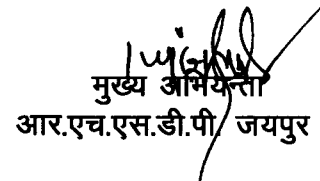 मुख्य अभियन्ता
आर.एच.एस.डी.पी. जयपुर